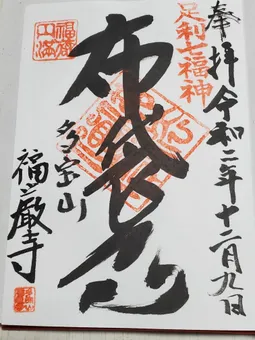 奉拝
令和二年十二月九日
足利七福神
布袋尊
福徳円満
多宝山
福厳寺